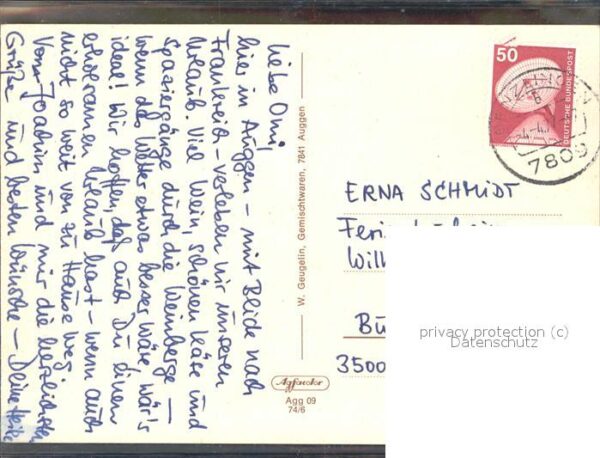 Liebe Omi,
hier in Auggen – mit Blick nach
Frankreich – verleben wir unseren
Urlaub. Viel Wein, schönen Käse und
Spaziergänge durch die Weinberge –
wenn das Wetter etwas besser wäre, wär's
ideal! Wir hoffen, daß auch Du einen
erholsamen Urlaub hast – wenn auch
nicht so weit von zu Hause weg.
Von Joachim und mir die herzlichsten
Grüße und besten Wünsche – Deine
W. Geugelin, Gemischtwaren, 7841 Auggen
Agfacolor
Agg 09
74/6
50
DEUTSCHE BUNDESPOST
7809
ERNA SCHMIDT
3500
privacy protection (c)
Datenschutz